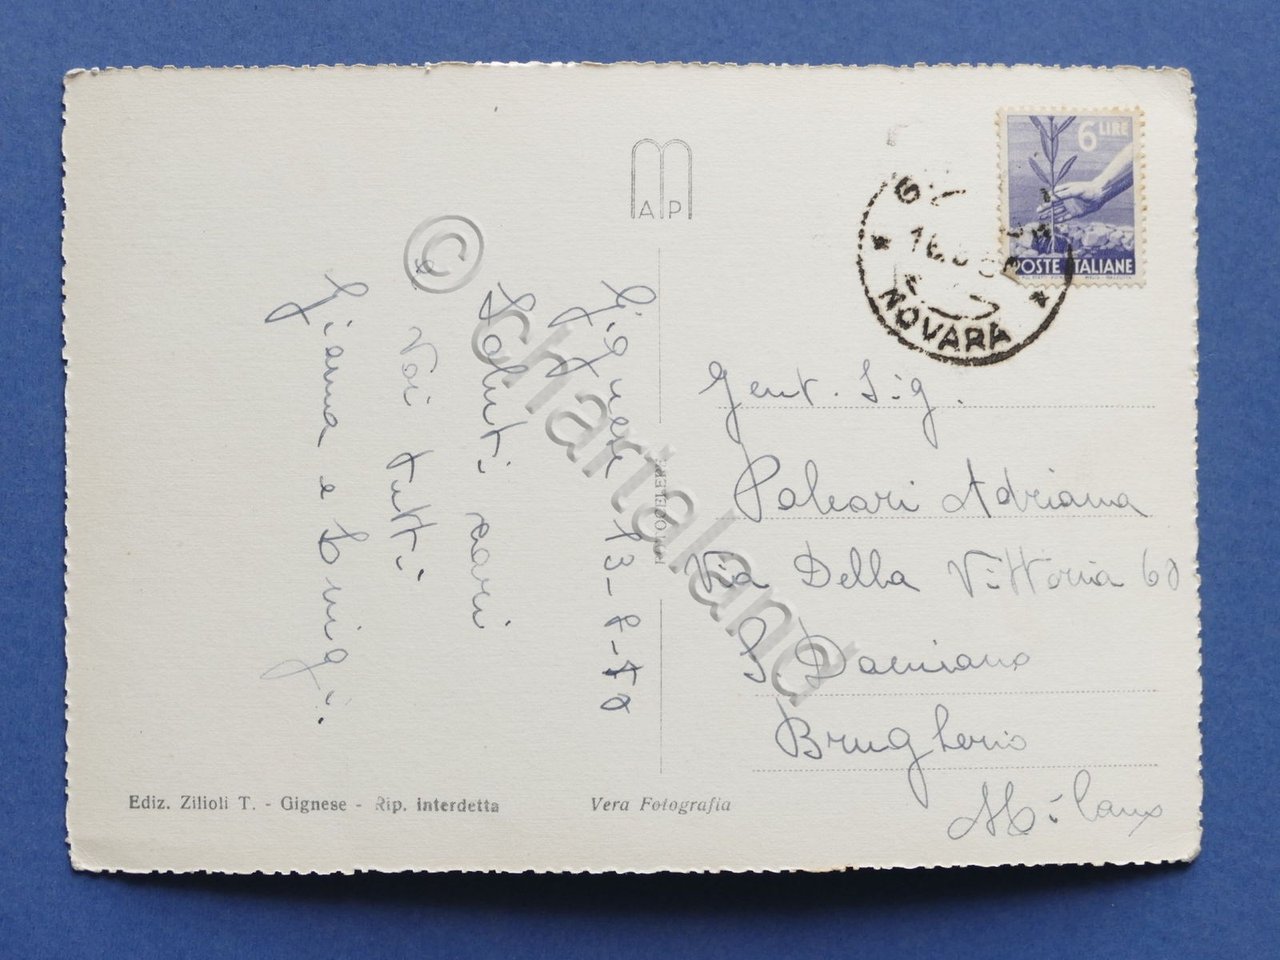 6 LIRE
POSTE ITALIANE
NOVARA
MAP
Gignese 13-8-50
Saluti cari
a Voi tutti
Gianna e Luigi.
Gent. Sig.
Paleari Adriana
Via Della Vittoria 60
S Damiano
Brugherio
Milano
FOTOCELERE
Ediz. Zilioli T. - Gignese - Rip. interdetta
Vera Fotografia
© chartaland